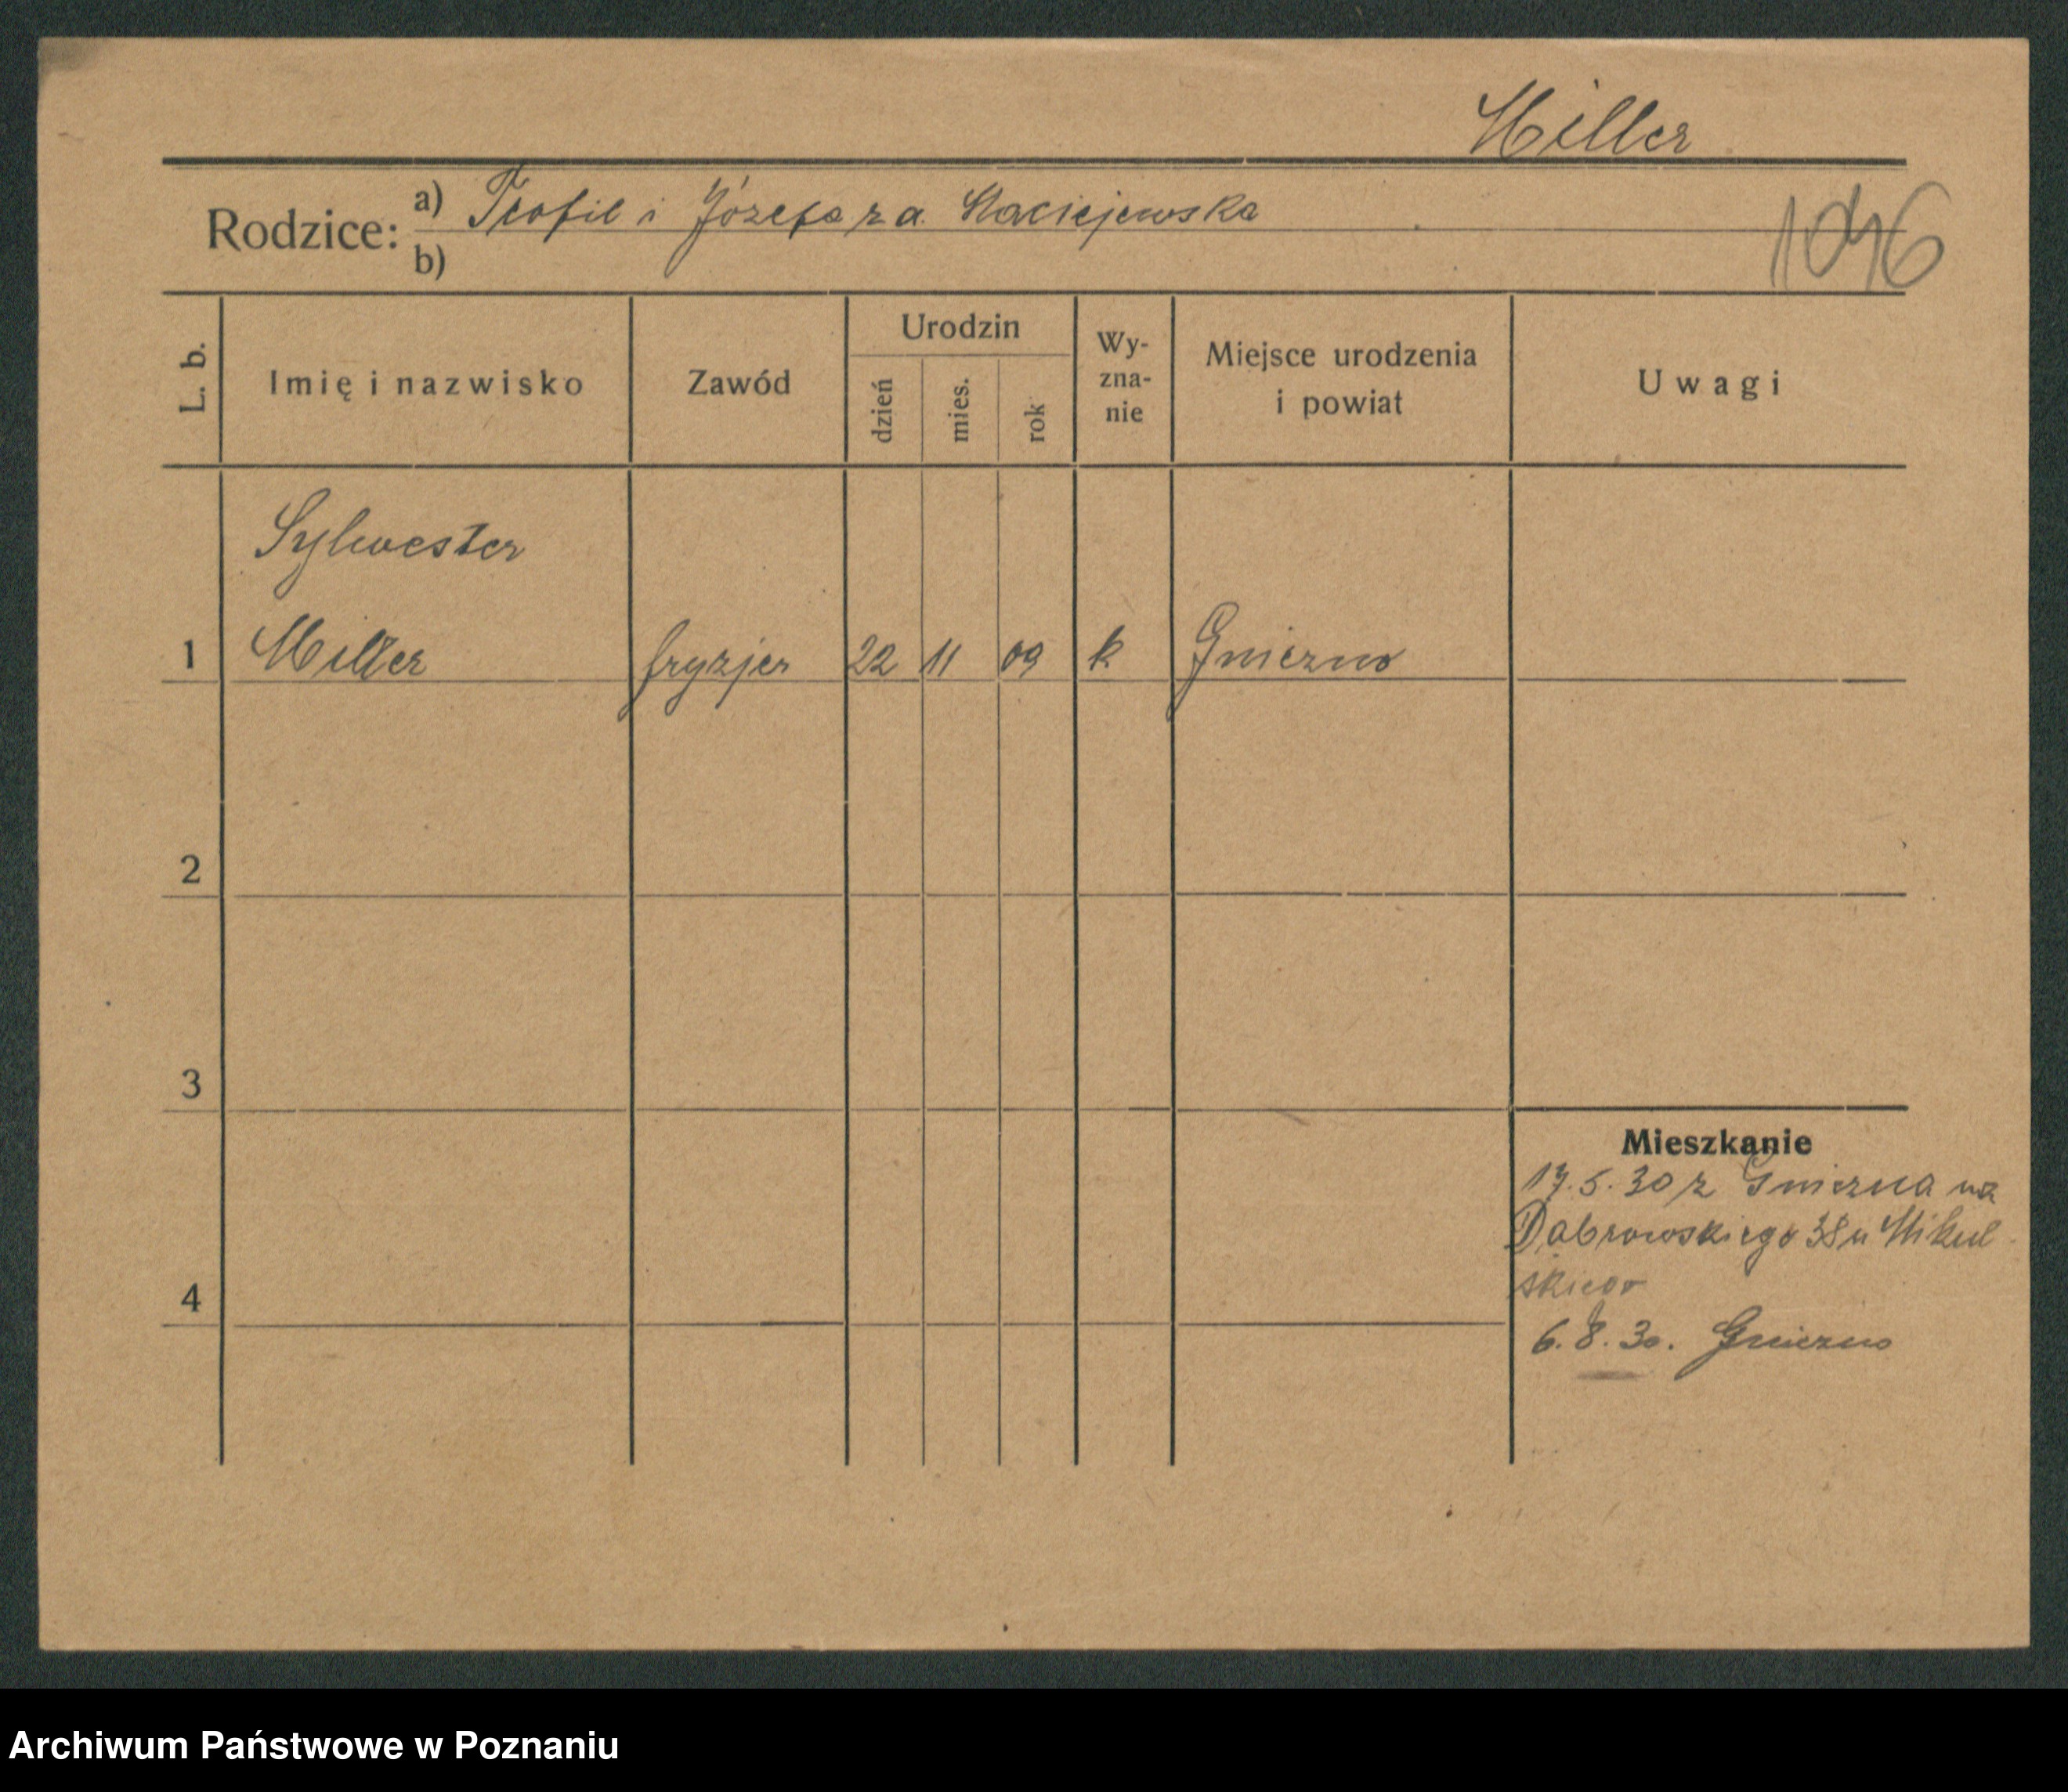 Miller
Rodzice: a) Teofil i Józefa z d. Maciejewska
b)
1046
L. b.
Imię i nazwisko
Zawód
Urodzin
dzień
mies.
rok
Wy-
zna-
nie
Miejsce urodzenia
i powiat
Uwagi
Sylwester
1 Miller fryzjer 22 11 09 k Gniezno
2
3
4
Mieszkanie
17.5.30 z Gniezna na
Dąbrowskiego 38 u Mikul
skiego
6.8.30. Gniezno
Archiwum Państwowe w Poznaniu